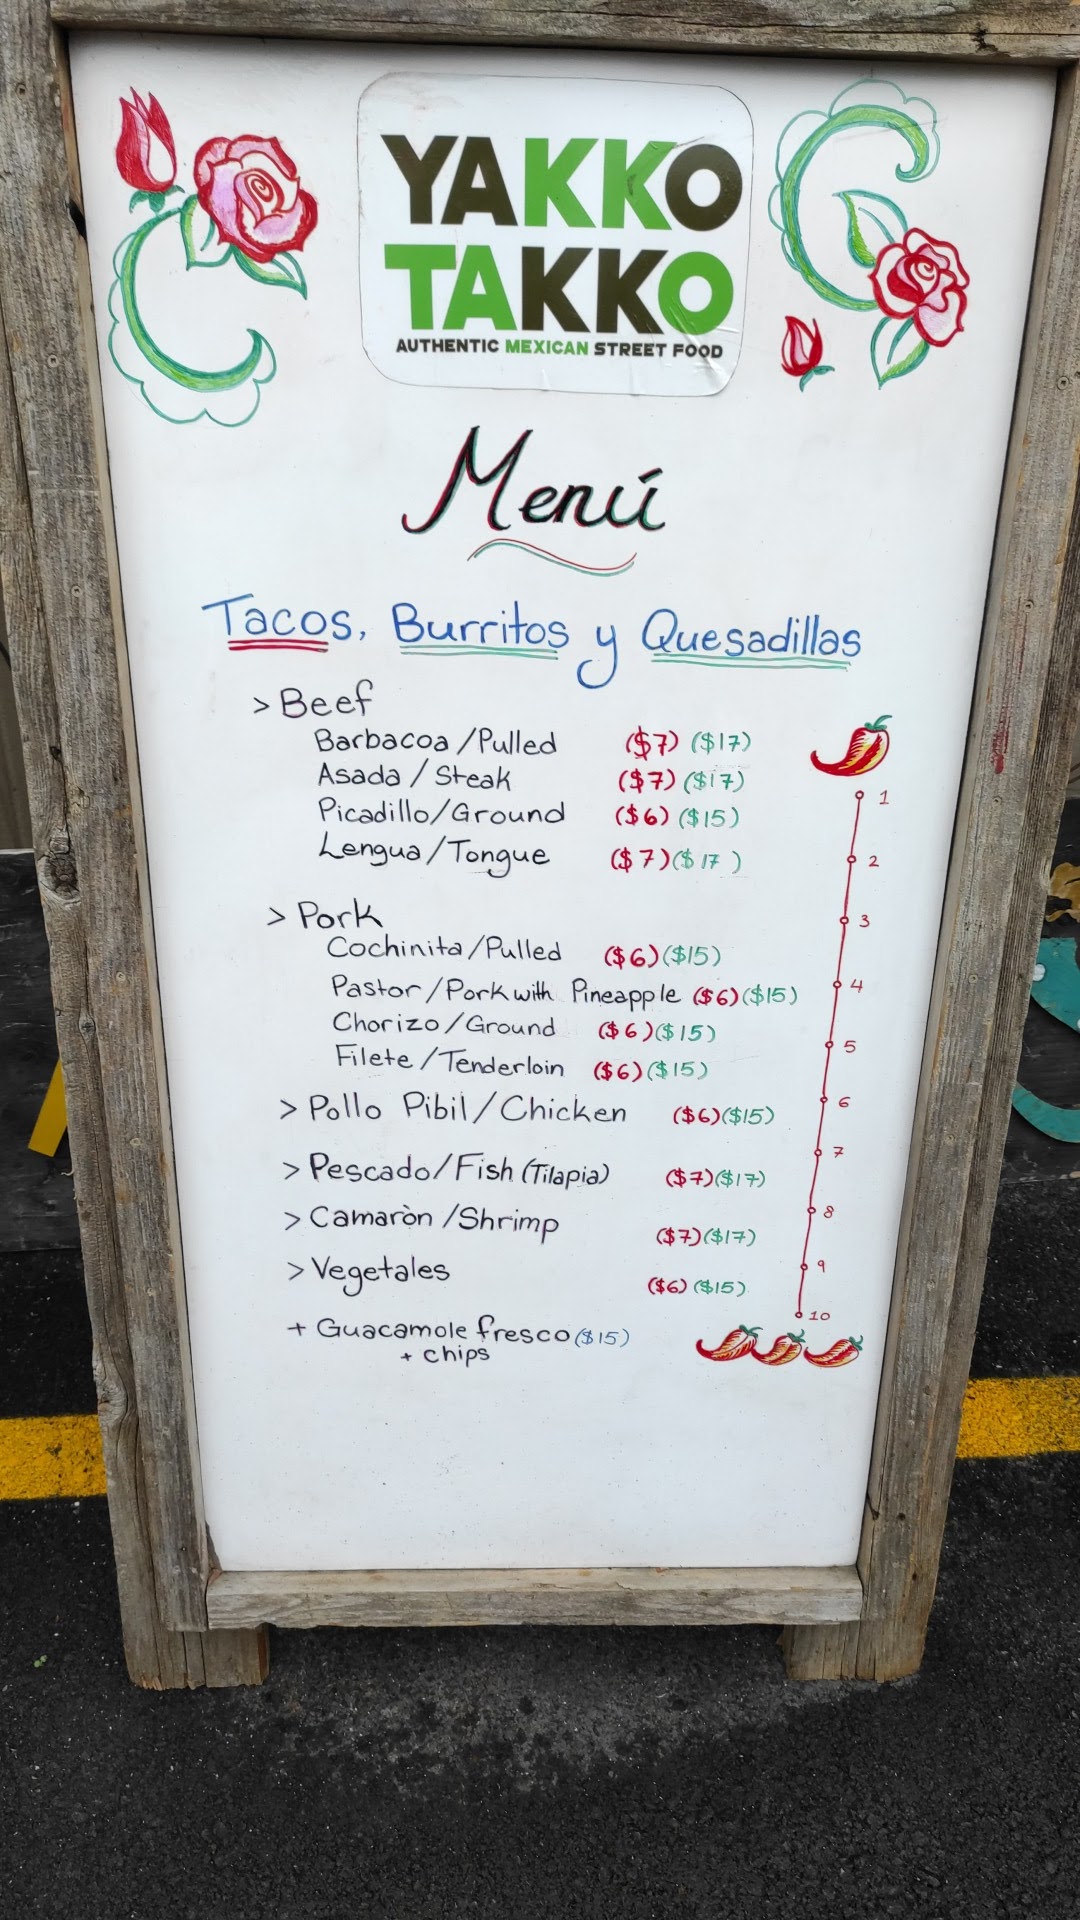 YAKKO
TAKKO
AUTHENTIC MEXICAN STREET FOOD
Menú
Tacos, Burritos y Quesadillas
> Beef
Barbacoa/Pulled ($7) ($17)
Asada/Steak ($7) ($17)
Picadillo/Ground ($6) ($15)
Lengua/Tongue ($7) ($17)
> Pork
Cochinita/Pulled ($6) ($15)
Pastor/Pork with Pineapple ($6) ($15)
Chorizo/Ground ($6) ($15)
Filete/Tenderloin ($6) ($15)
> Pollo Pibil/Chicken ($6) ($15)
> Pescado/Fish (Tilapia) ($7) ($17)
> Camaròn/Shrimp ($7) ($17)
> Vegetales ($6) ($15)
+ Guacamole fresco ($15)
+ chips
1
2
3
4
5
6
7
8
9
10